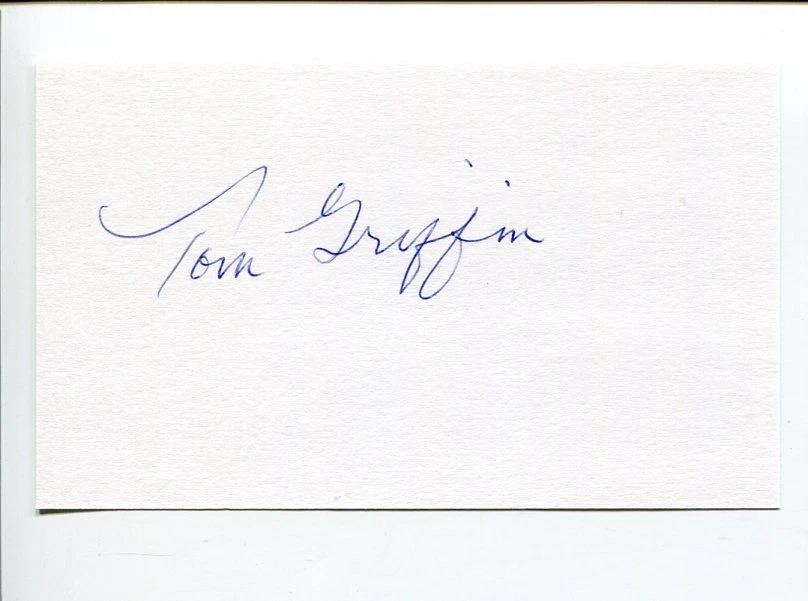 Tom Griffin